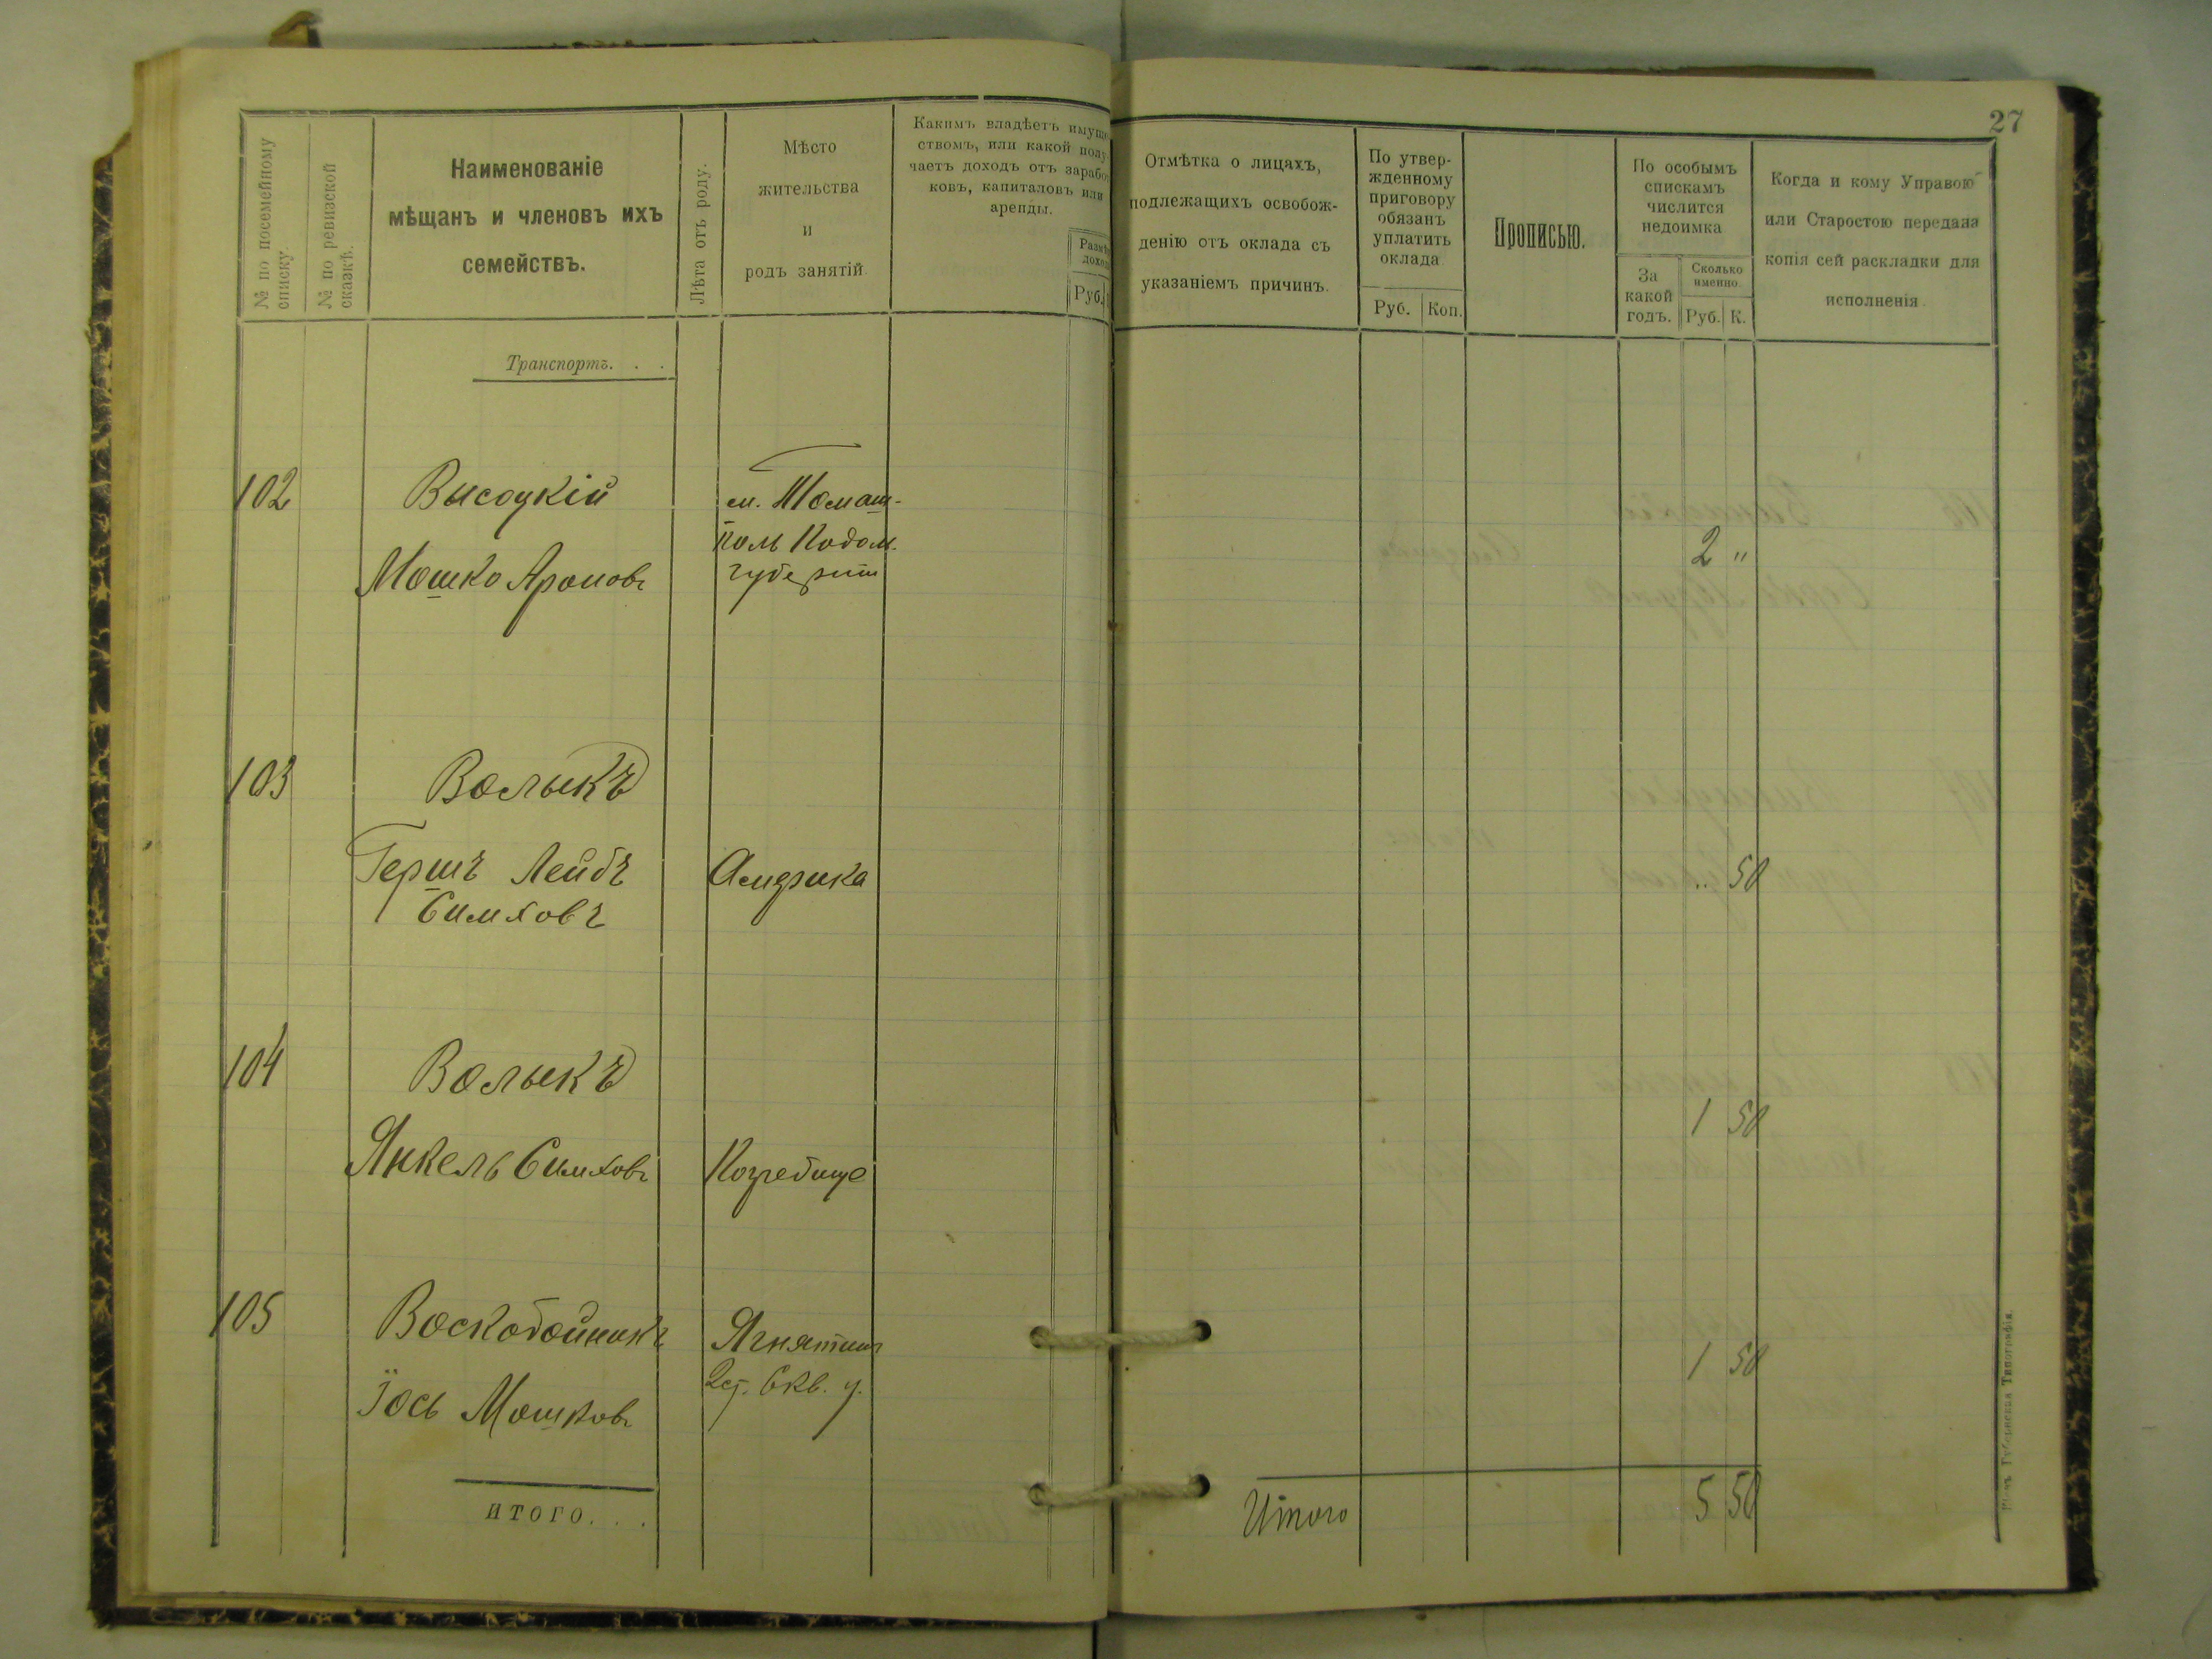 27
№ по посемейному
списку.
№ по ревизской
сказкѣ.
Наименованіе
мѣщанъ и членовъ ихъ
семействъ.
Лѣта отъ роду.
Мѣсто
жительства
и
родъ занятій.
Какимъ владѣетъ имуще
ствомъ, или какой полу
чаетъ доходъ отъ зарабо
ковъ, капиталовъ или
аренды.
Руб.
Отмѣтка о лицахъ,
подлежащихъ освобож-
денію отъ оклада съ
указаніемъ причинъ.
По утвер-
жденному
приговору
обязанъ
уплатить
оклада
Руб. Коп.
Прописью.
По особымъ
спискамъ
числится
недоимка
За
какой
годъ.
Сколько
именно.
Руб. К.
Когда и кому Управою
или Старостою передана
копія сей раскладки для
исполненія.
Транспортъ. . .
102 Высоцкій м. Томаш-
поль Подол. 2 "
Мошко Ароновъ губерніи
103 Волыкъ
Гершъ Лейбъ Америка .. 50
Симховъ
104 Волыкъ
1 50
Янкель Симховъ Погребище
105 Воскобойникъ Ягнятинъ 1 50
Скв. у.
Іось Мошковъ
ИТОГО. . .
Итого 5 50